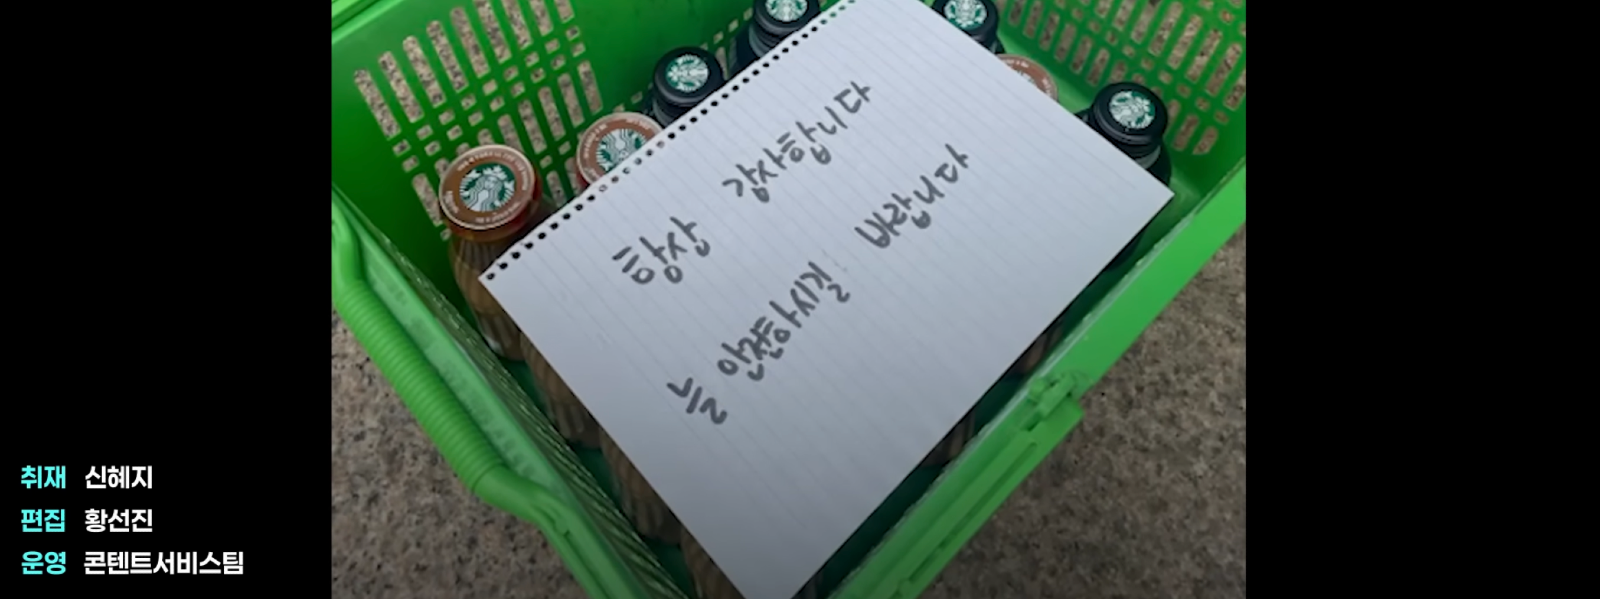 항상 감사합니다
늘 안전하시길 바랍니다
취재 신혜지
편집 황선진
운영 콘텐트서비스팀